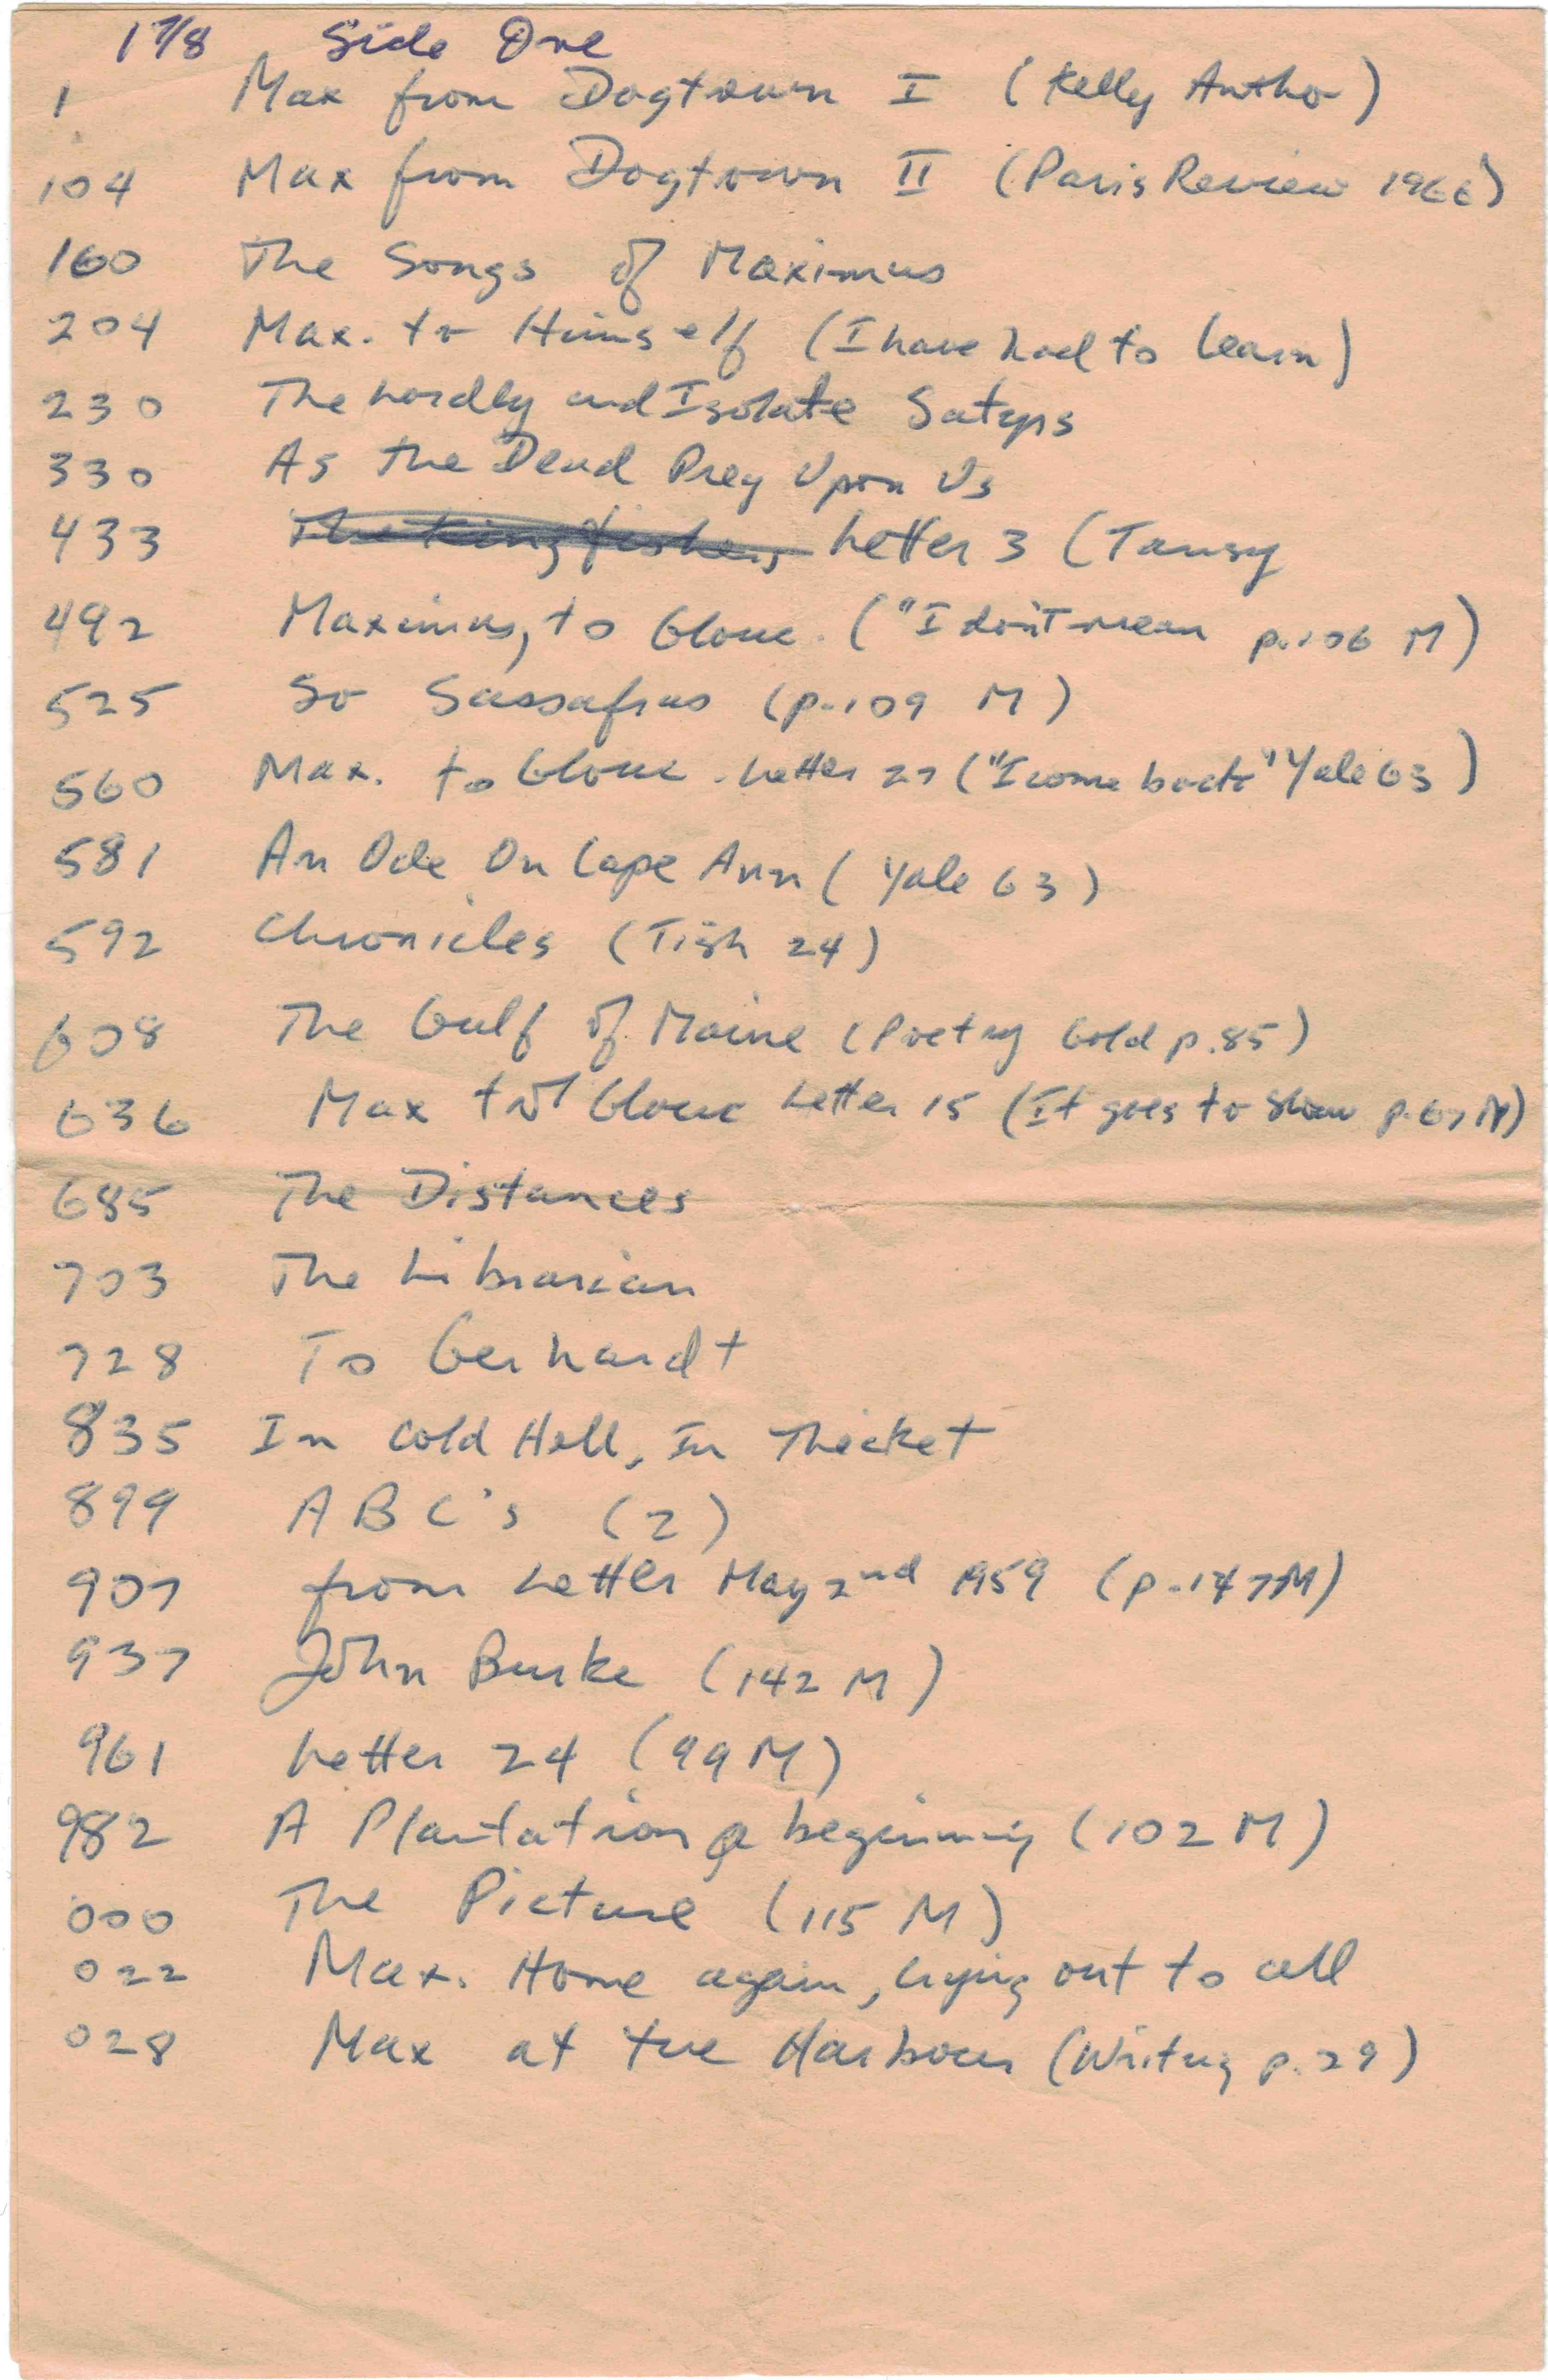 1 7/8 Side One
1 Max from Dogtown I (Kelly Antho)
104 Max from Dogtown II (Paris Review 1966)
160 The Songs of Maximus
204 Max. to Himself (I have had to learn)
230 The Lordly and Isolate Satyrs
330 As the Dead Prey Upon Us
433 The Kingfishers Letter 3 (Tansy
492 Maximus, to Glouc. ("I don't mean p.106 M)
525 So Sassafras (p.109 M)
560 Max. to Glouc. Letter 27 ("I come back" Yale 63)
581 An Ode On Cape Ann (Yale 63)
592 Chronicles (Tish 24)
608 The Gulf of Maine (Poetry Gold p.85)
636 Max to Glouc Letter 15 (It goes to show p.67 M)
685 The Distances
703 The Librarian
728 To Gerhardt
835 In Cold Hell, In Thicket
899 ABC's (2)
907 from Letter May 2nd 1959 (p.147M)
937 John Burke (142 M)
961 Letter 24 (99 M)
982 A Plantation a beginning (102 M)
000 The Picture (115 M)
022 Max. Home again, crying out to all
028 Max at the Harbour (Writing p.29)